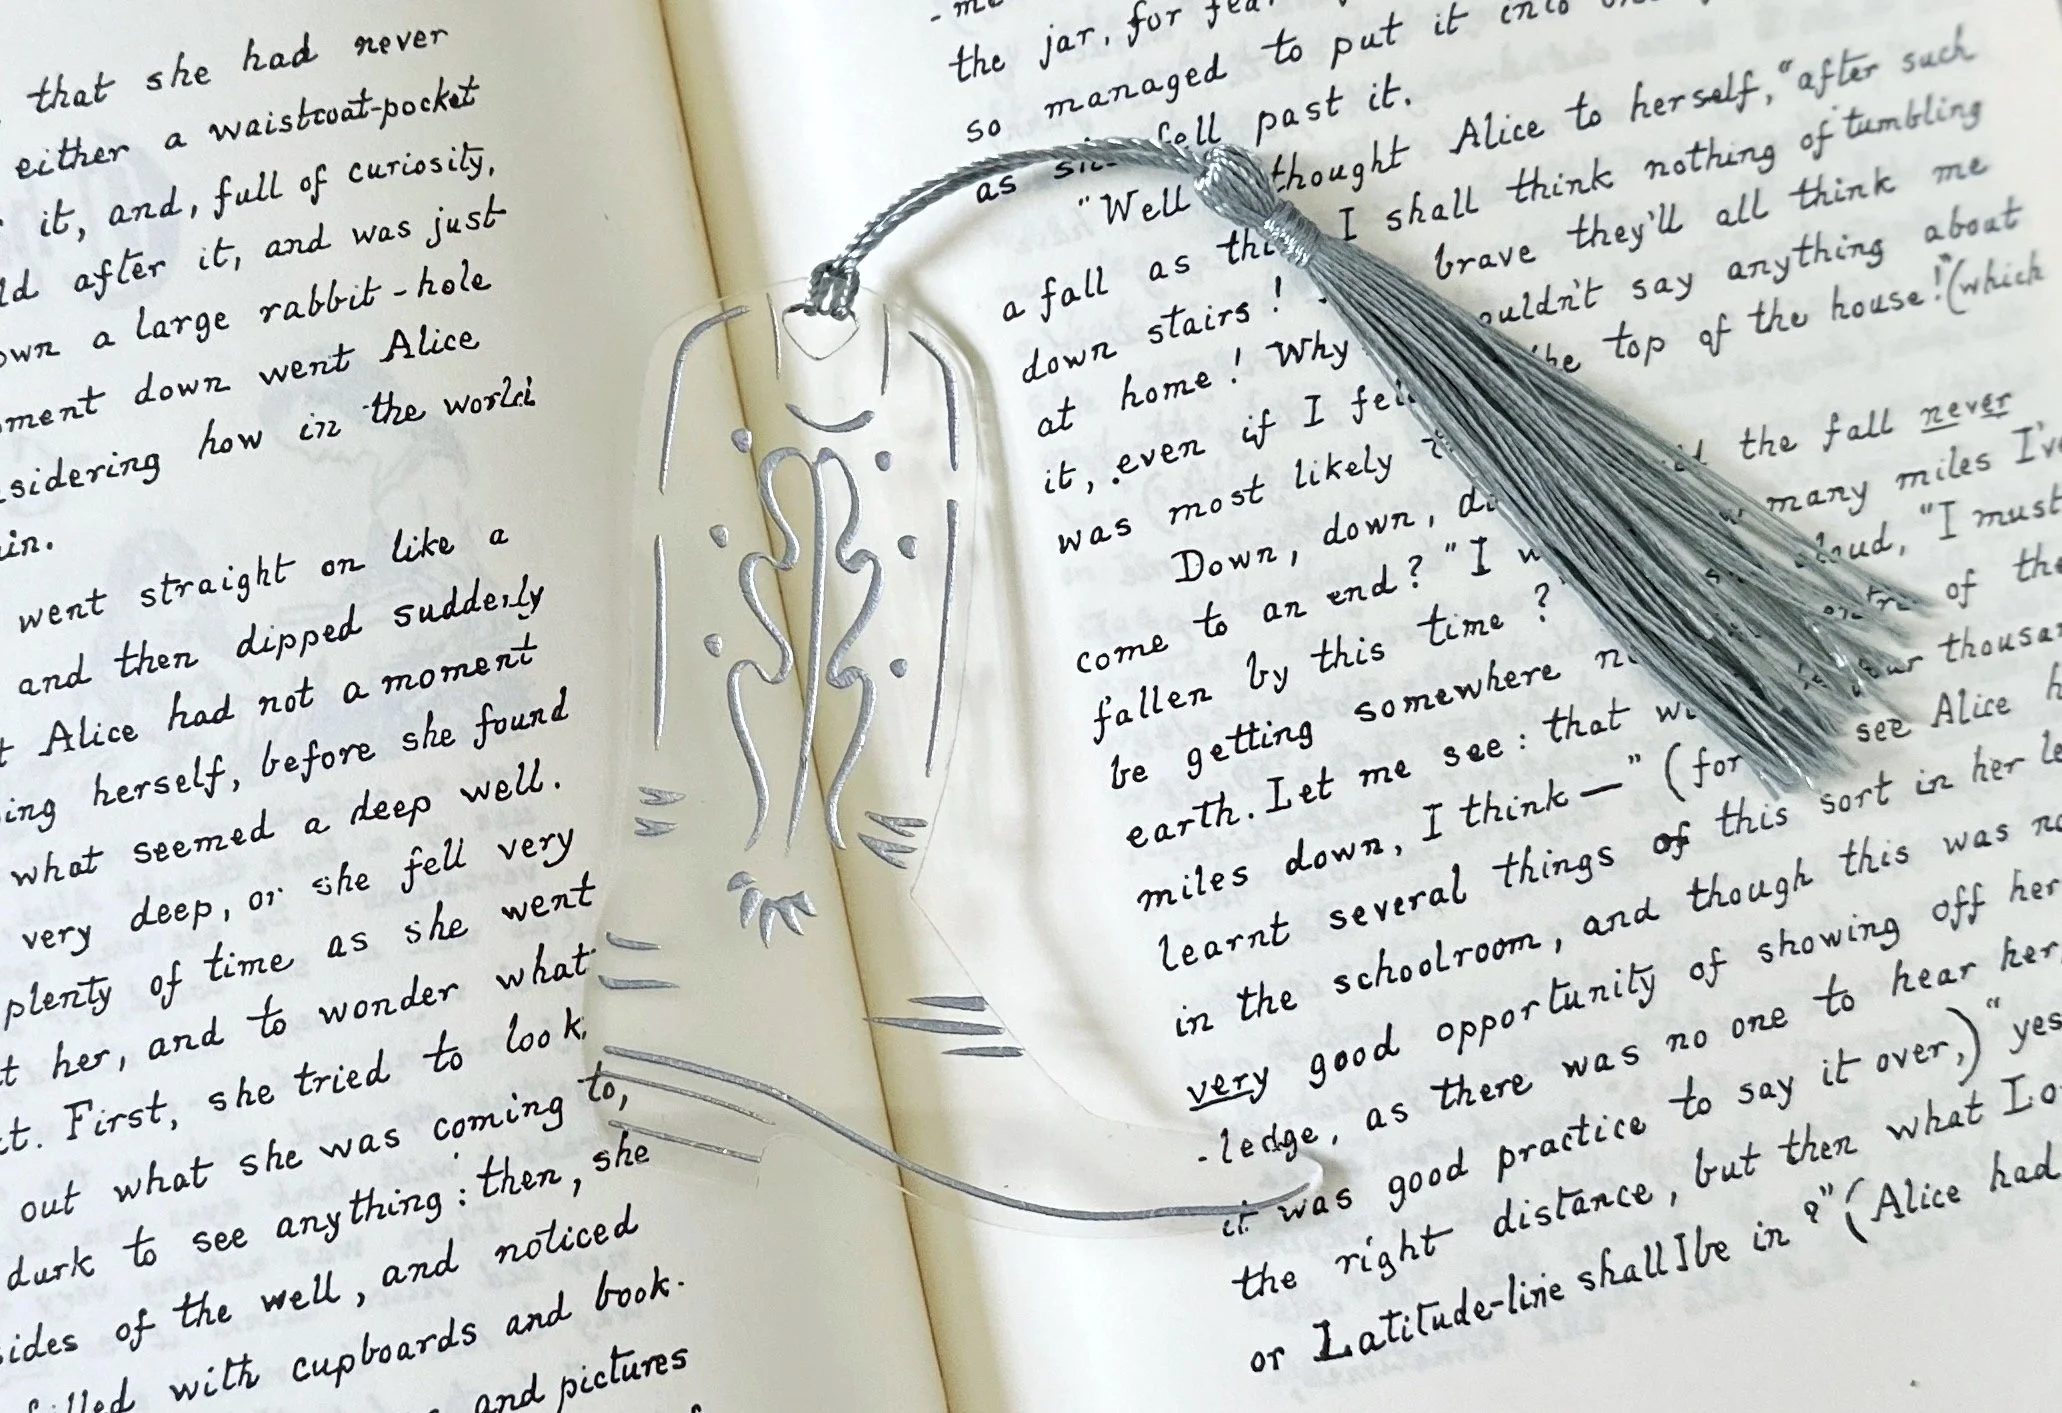 that she had never
either a waistcoat-pocket
it, and, full of curiosity,
after it, and was just
a large rabbit-hole
down went Alice
how in the world
went straight on like a
and then dipped suddenly
Alice had not a moment
herself, before she found
what seemed a deep well.
very deep, or she fell very
plenty of time as she went
her, and to wonder what
First, she tried to look
out what she was coming to,
durk to see anything: then, she
of the well, and noticed
with cupboards and book-
and pictures
the jar, for fear
so managed to put it into
as fell past it.
"Well thought Alice to herself, "after such
a fall as I shall think nothing of tumbling
down stairs! brave they'll all think me
at home! Why say anything about
it, even if I top of the house!" (which
was most likely
Down, down, the fall never
come to an end? "I many miles I've
fallen by this time?" "I must
be getting somewhere of the
earth. Let me see: that thousand
miles down, I think—" (for see Alice
learnt several things of this sort in her
in the schoolroom, and though this was
very good opportunity of showing off her
-ledge, as there was no one to hear her,
it was good practice to say it over,) "yes
the right distance, but then what
or Latitude-line shall I be in?" (Alice had